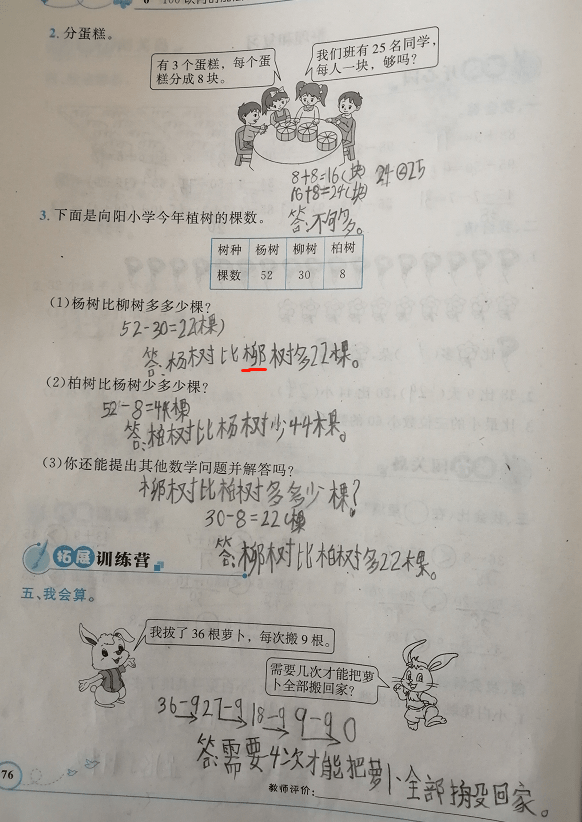 2. 分蛋糕。
有3个蛋糕，每个蛋糕分成8块。
我们班有25名同学，每人一块，够吗？
8+8=16(块)
16+8=24(块) 24<25
答:不够。
3. 下面是向阳小学今年植树的棵数。
树种 杨树 柳树 柏树
棵数 52 30 8
(1)杨树比柳树多多少棵？
52-30=22(棵)
答:杨树比柳树多22棵。
(2)柏树比杨树少多少棵？
52-8=44(棵)
答:柏树比杨树少44棵。
(3)你还能提出其他数学问题并解答吗？
柳树比柏树多多少棵？
30-8=22(棵)
答:柳树比柏树多22棵。
拓展训练营
五、我会算。
我拔了36根萝卜，每次搬9根。
需要几次才能把萝卜全部搬回家？
36-9 27-9 18-9 9-9 0
答:需要4次才能把萝卜全部搬回家。
76
教师评价: